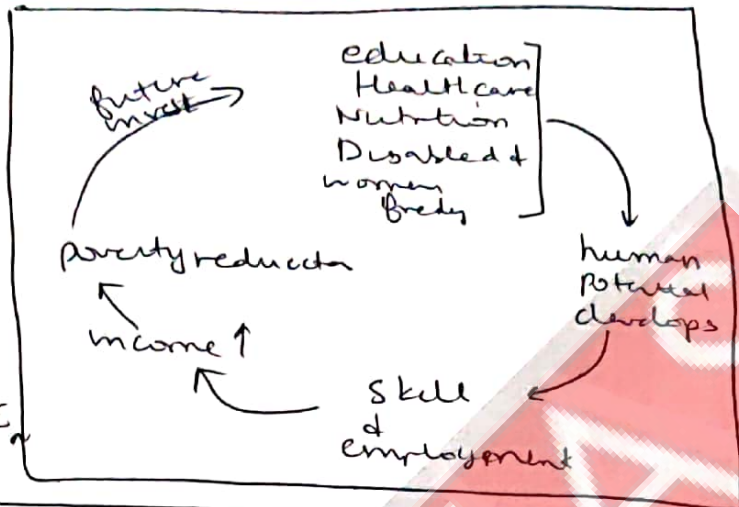 future
invest
education
Healthcare
Nutrition
Disabled &
women
human
potential
develops
Skill
&
employement
income ↑
poverty reduction